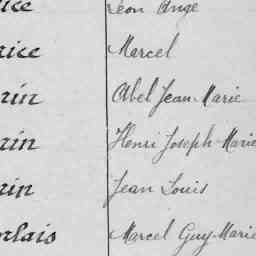 ice Léon Ange
rice Marcel
rin Abel Jean-Marie
rin Henri Joseph Marie
rin Jean Louis
rlais Marcel Guy-Marie